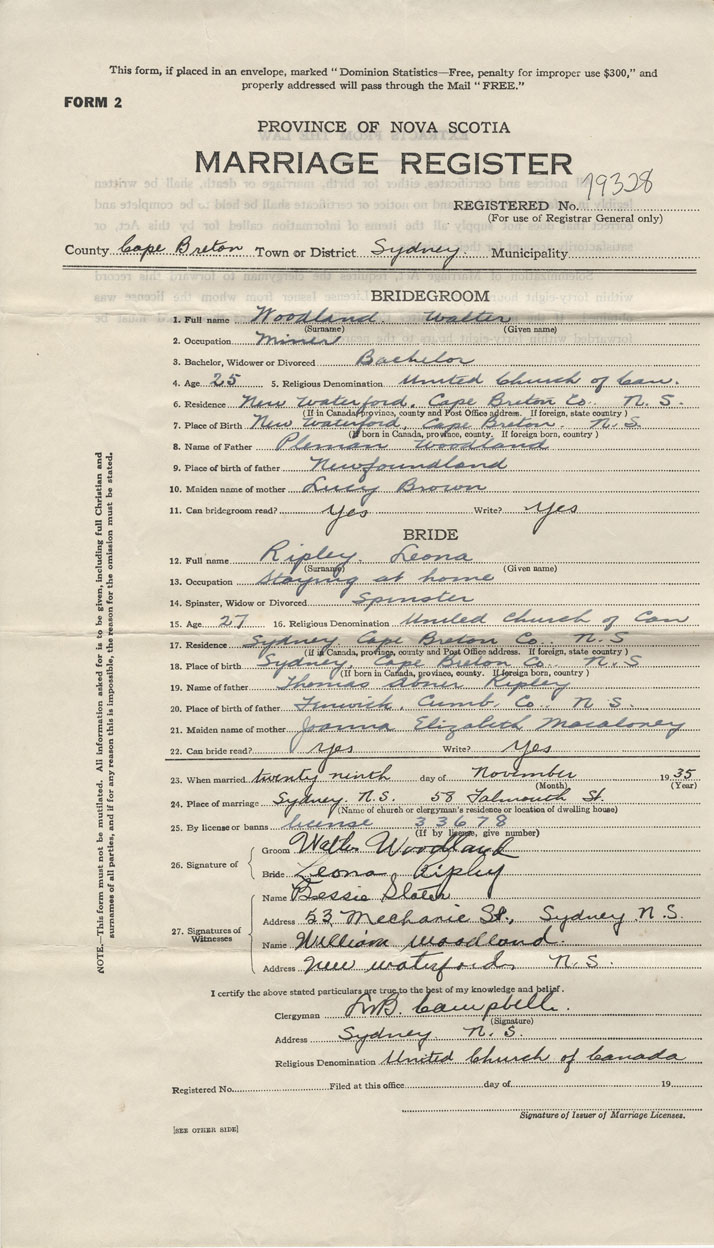 This form, if placed in an envelope, marked "Dominion Statistics—Free, penalty for improper use $300," and
properly addressed will pass through the Mail "FREE."
FORM 2
PROVINCE OF NOVA SCOTIA
MARRIAGE REGISTER
REGISTERED No. 19328
(For use of Registrar General only)
County Cape Breton Town or District Sydney. Municipality
BRIDEGROOM
1. Full name Woodland. Walter
(Surname) (Given name)
2. Occupation Miner
3. Bachelor, Widower or Divorced Bachelor
4. Age 25 5. Religious Denomination United Church of Can.
6. Residence New Waterford, Cape Breton Co. N. S.
(If in Canada, province, county and Post Office address. If foreign, state country)
7. Place of Birth New Waterford, Cape Breton. N. S.
(If born in Canada, province, county. If foreign born, country)
8. Name of Father Pleman Woodland
9. Place of birth of father Newfoundland
10. Maiden name of mother Lucy Brown
11. Can bridegroom read? Yes Write? Yes
BRIDE
12. Full name Ripley, Leona
(Surname) (Given name)
13. Occupation Staying at home
14. Spinster, Widow or Divorced Spinster
15. Age 27 16. Religious Denomination United Church of Can
17. Residence Sydney Cape Breton Co. N. S
(If in Canada, province, county and Post Office address. If foreign, state country)
18. Place of birth Sydney, Cape Breton Co. N. S
(If born in Canada, province, county. If foreign born, country)
19. Name of father Thomas Abner Ripley
20. Place of birth of father Fenwick, Cumb. Co. N S.
21. Maiden name of mother Joanna Elizabeth Macaloney
22. Can bride read? Yes Write? Yes
23. When married twenty ninth day of November 1935
(Month) (Year)
24. Place of marriage Sydney N.S. 58 Falmouth St.
(Name of church or clergyman's residence or location of dwelling house)
25. By license or banns license 33678
(If by license, give number)
26. Signature of
Groom Walter Woodland
Bride Leona Ripley
27. Signatures of Witnesses
Name Bessie Slater
Address 53 Mechanic St., Sydney N.S.
Name William Woodland.
Address New Waterford, N. S.
I certify the above stated particulars are true to the best of my knowledge and belief.
Clergyman Campbell.
(Signature)
Address Sydney N. S.
Religious Denomination United Church of Canada
Registered No. Filed at this office day of 19
Signature of Issuer of Marriage Licenses.
[SEE OTHER SIDE]
NOTE.—This form must not be mutilated. All information asked for is to be given, including full Christian and
surnames of all parties, and if for any reason this is impossible, the reason for the omission must be stated.